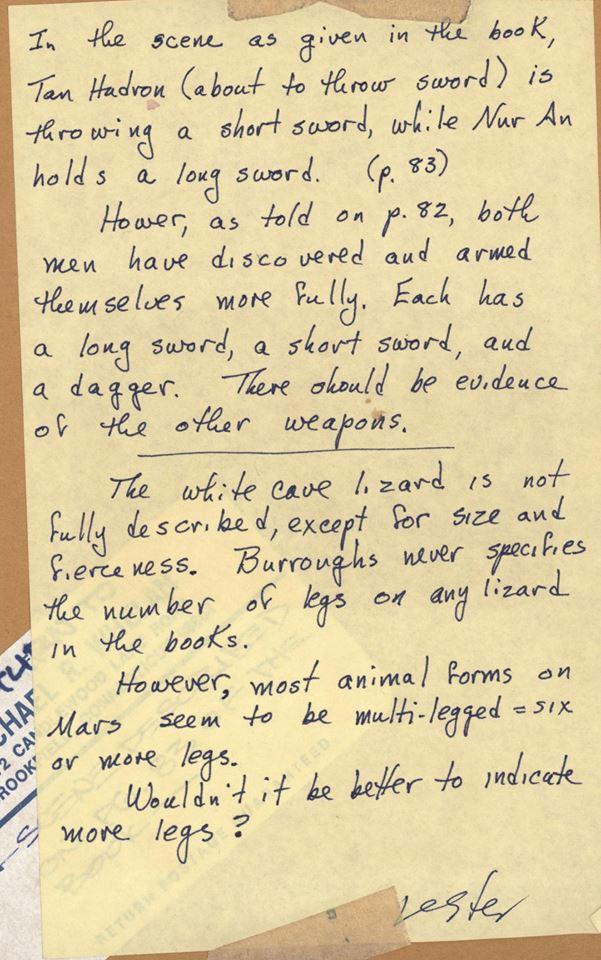 In the scene as given in the book,
Tan Hadron (about to throw sword) is
throwing a short sword, while Nur An
holds a long sword. (p. 83)
Hower, as told on p. 82, both
men have discovered and armed
themselves more fully. Each has
a long sword, a short sword, and
a dagger. There should be evidence
of the other weapons.
The white cave lizard is not
fully described, except for size and
fierceness. Burroughs never specifies
the number of legs on any lizard
in the books.
However, most animal forms on
Mars seem to be multi-legged = six
or more legs.
Wouldn't it be better to indicate
more legs?
Lester
RETURN